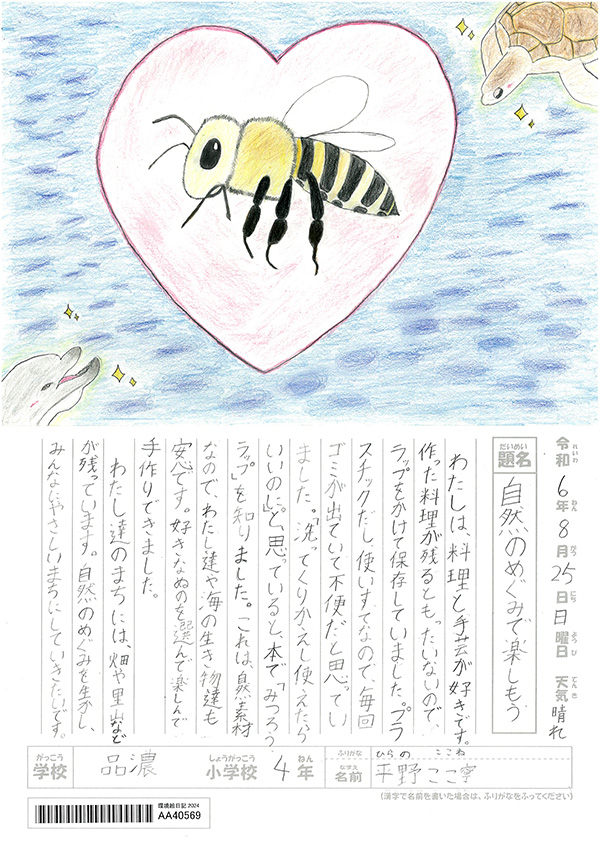 令和6年8月25日日曜日 天気 晴れ
れいわ ねん がつ にち ようび てんき
だいめい
題名 自然のめぐみで楽しもう
わたしは、料理と手芸が好きです。
作った料理が残るともったいないので、
ラップをかけて保存していました。プラ
スチックだし、使いすてなので、毎回
ゴミが出ていて不便だと思ってい
ました。「洗ってくりかえし使えたら
いいのに。」と思っていると、本で「みつろう
ラップ」を知りました。これは、自然素材
なので、わたし達や海の生き物達も
安心です。好きなぬのを選んで楽しんで
手作りできました。
わたし達のまちには、畑や里山など
が残っています。自然のめぐみを生かし、
みんなにやさしいまちにしていきたいです。
がっこう しょうがっこう ねん ふりがな ひらの ここね
学校 品濃 小学校 4年 なまえ 名前 平野ここ寧
(漢字で名前を書いた場合は、ふりがなをふってください)
環境絵日記 2024
AA40569